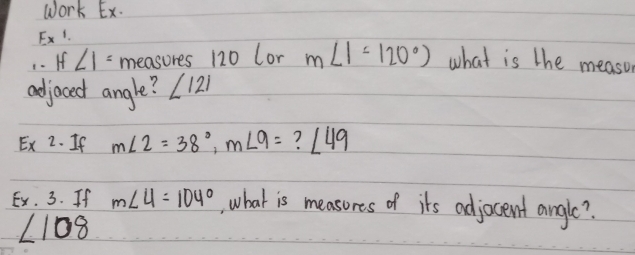 Work Ex.
Ex 1.
1. If ∠1 = measures 120 (or m∠1 = 120°) what is the measur
adjaced angle? ∠121
Ex 2. If m∠2 = 38°, m∠9 = ? ∠49
Ex. 3. If m∠4 = 104°, what is measures of its adjacent angle?.
∠108